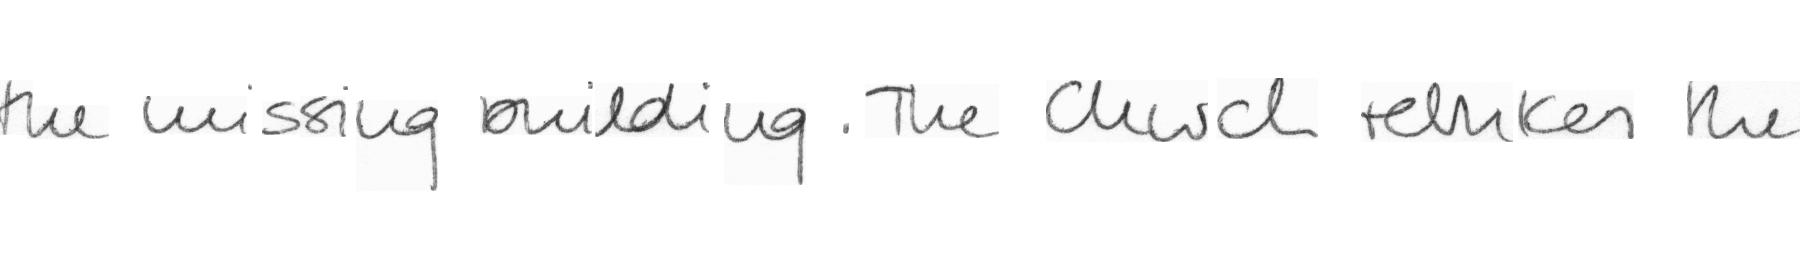 the missing building . The Church rebukes the